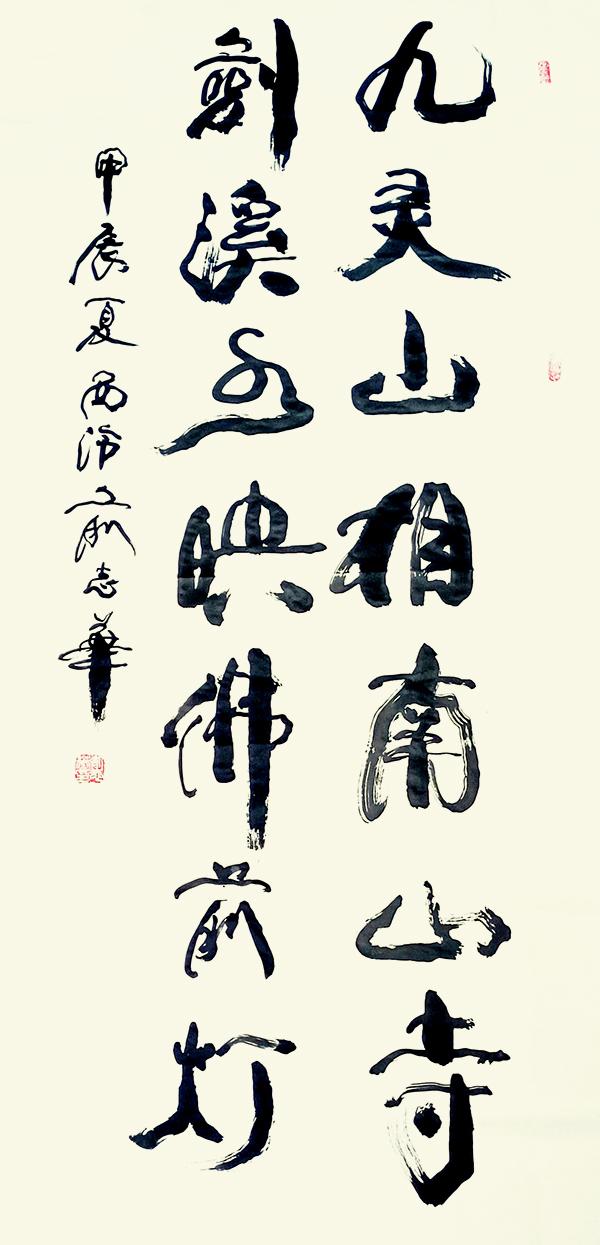 九灵山相南山寺
剑溪水映佛前灯
甲辰夏西泠俞志華